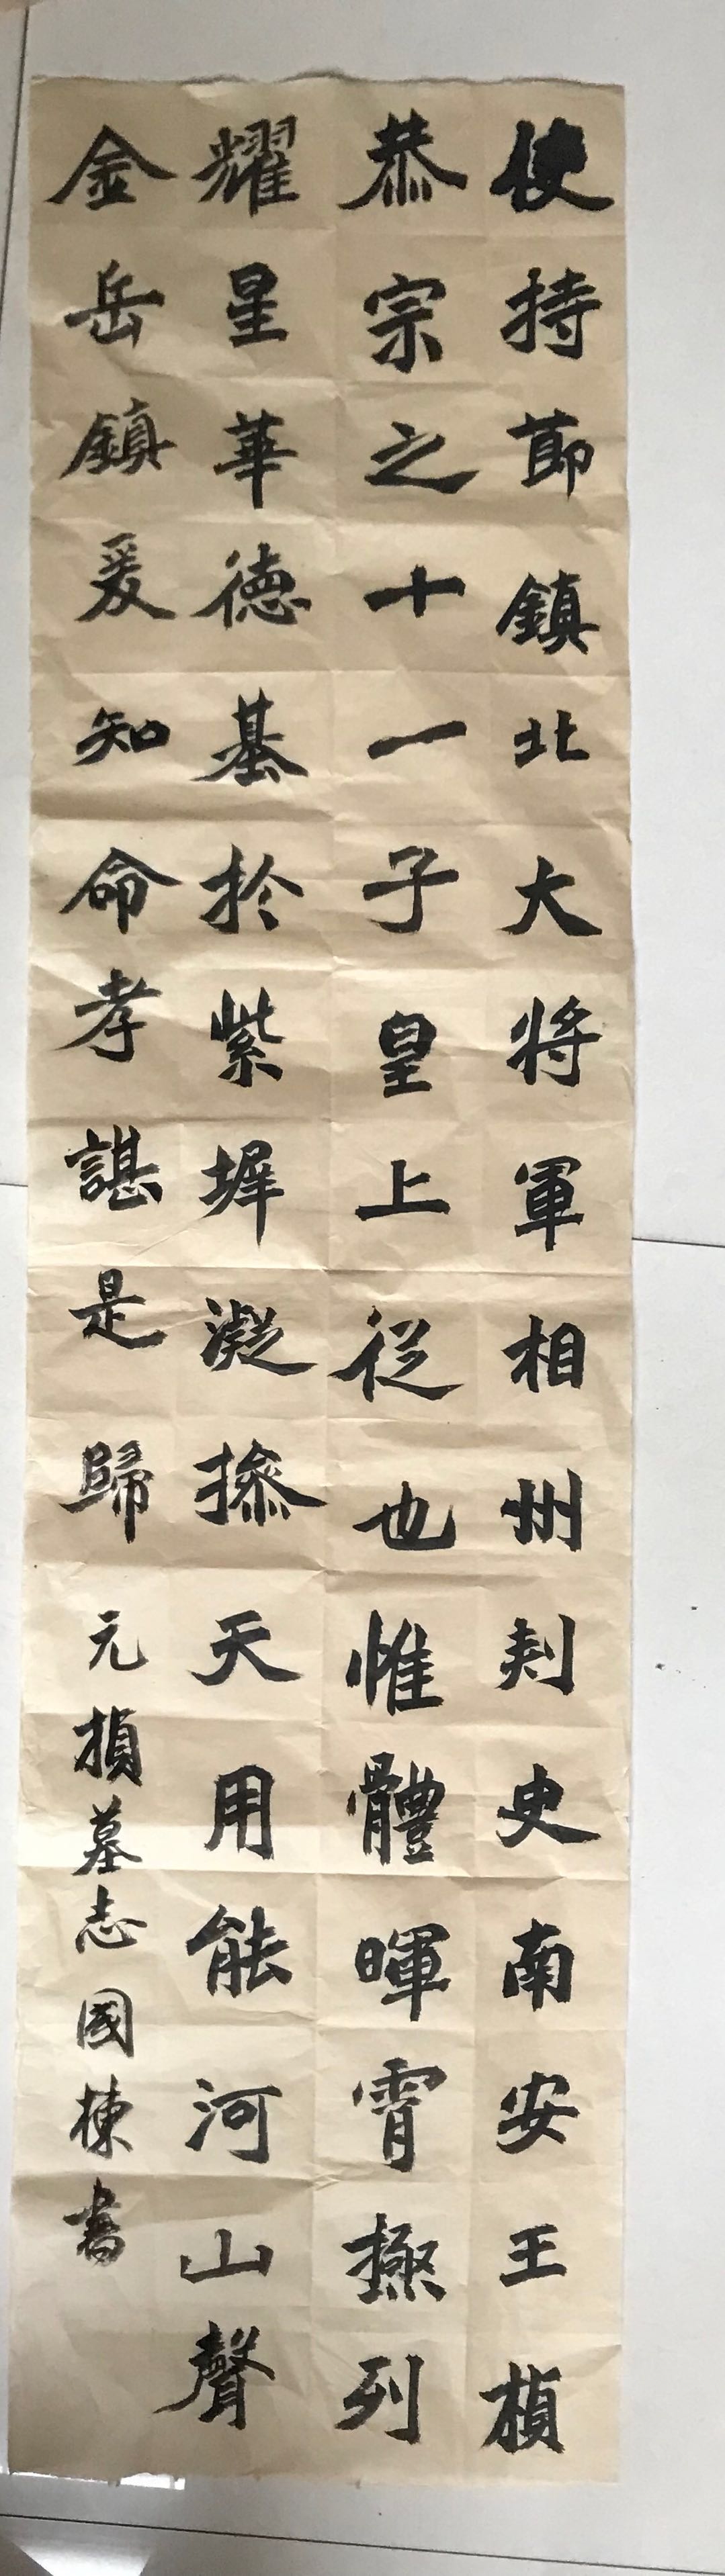 使持節鎮北大將軍相州刾史南安王楨
恭宗之十一子皇上從也惟體暉霄極列
耀星華德基於紫墀凝操天用能河山聲
金岳鎮爰知命孝諶是歸
元損墓志國棟書